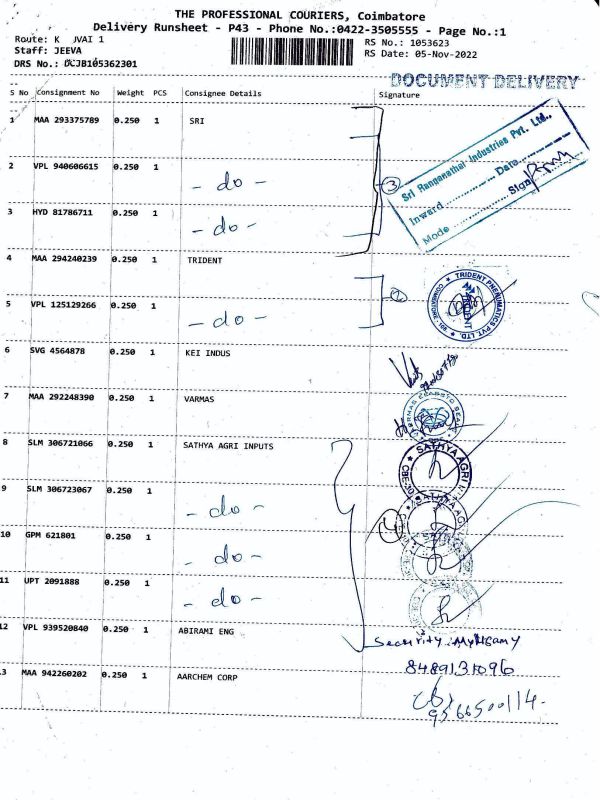 THE PROFESSIONAL COURIERS, Coimbatore
Delivery Runsheet - P43 - Phone No.:0422-3505555 - Page No.:1
Route: K JVAI 1
Staff: JEEVA
DRS No.: DCJB105362301
RS No.: 1053623
RS Date: 05-Nov-2022
DOCUMENT DELIVERY
S No Consignment No Weight PCS Consignee Details Signature
1 MAA 293375789 0.250 1 SRI
2 VPL 940606615 0.250 1 - do -
3 HYD 81786711 0.250 1 - do -
3
Sri Ranganathar Industries Pvt. Ltd.,
Inward Date
Mode Sign
4 MAA 294240239 0.250 1 TRIDENT
5 VPL 125129266 0.250 1 - do -
2
TRIDENT PNEUMATICS PVT LTD.
TRIDENT
6 SVG 4564878 0.250 1 KEI INDUS
7 MAA 292248390 0.250 1 VARMAS
8 SLM 306721066 0.250 1 SATHYA AGRI INPUTS
SATHYA AGRI
9 SLM 306723067 0.250 1 - do -
SATHYA AGRI
4
10 GPM 621801 0.250 1 - do -
11 UPT 2091888 0.250 1 - do -
12 VPL 939520840 0.250 1 ABIRAMI ENG
Security
8489131096
3 MAA 942260202 0.250 1 AARCHEM CORP
9566500114